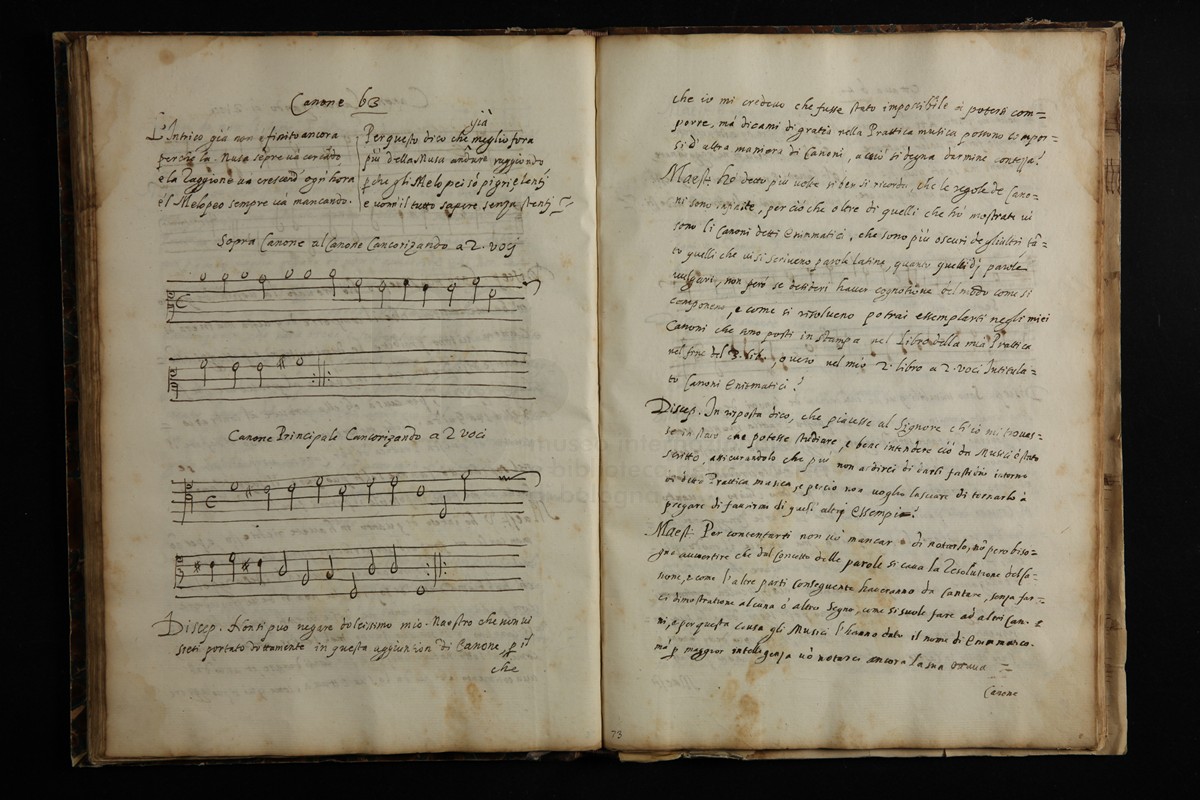 Canone 63
L'Intrico già non è finito ancora
perche la Musa sepre và cercādo
e la Raggione và crescēd' ogn' hora
e'l Melopeo sempre và mancando.
già
Per questo dico che meglio fora
più della Musa andare ruggiando
p che gli Melopei sō pigri e lenti
e vonn'il tutto sapere senza stenti
Sopra Canone al Canone Cancorizando a 2. voci
Canone Principale Cancorizando a 2 voci
Discep. Non si può negare dolcissimo mio Maestro che non vi
sieti portato dottamente in questa aggiuntion di Canone, p il
che
che io mi credevo che fusse stato impossibile à potersi com=
porre, mà dicami di gratia nella Prattica musica possono compor=
si d'altra maniera di Canoni, acciò si degna darmine contezza?
Maest. hò detto più volte si ben si ricorda, che le regole de Cano=
ni sono infinite, perciò che oltre di quelli che hò mostrati vi
sono li Canoni detti Enimmatici, che sono più oscuri degl'altri tā=
to quelli che vi si scriveno parole latine, quanto quelli di parole
vulgari, non però se desideri haver cognitione del modo come si
componeno, e come si risolveno potrai essemplarti negli miei
Canoni che sono posti in stampa nel Libro della mia Prattica
nel fine del 3. libro, overo nel mio 2. libro a 2. voci Intitula=
to Canoni Enigmatici?
Discep. In risposta dico, che piacesse al Signore ch'io mi trovas=
se in stato che potesse studiare, e bene intendere ciò da Musici è stato
scritto, assicurandolo che più non ardirei di darli fastidio intorno
a detta Prattica musica, e perciò non voglio lasciare di tornarlo à
pregare di favrirmi di quest' altri Essempi?
Maest. Per contentarti non vò mancar di notarlo, mà però biso=
gna auvertire che dal Concetto delle parole si cava la Resolutione del Ca=
none, e come l'altre parti conseguente haveranno da Cantare, senza far=
ci dimostratione alcuna ò altro segno, come si suole fare ad altri Cano=
ni, e per questa causa gli Musici l'hanno dato il nome di Enimmatico.
mà p maggior intelligenza vò notarci ancora la sua
Canone
73